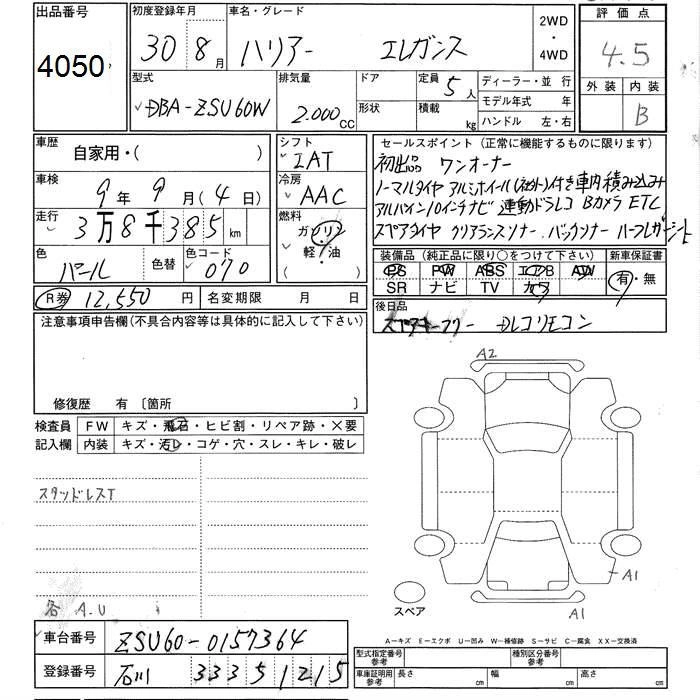 出品番号 4050
初度登録年月 30 8 月
車名・グレード ハリアー エレガンス
2WD ・ 4WD
評価点 4.5
外装 内装 B
型式 DBA-ZSU60W
排気量 2.000 CC
ドア
形状
定員 5 人
積載 kg
ディーラー・並 行
モデル年式 年
ハンドル 左・右
車歴 自家用・( )
車検 9 年 9 月 ( 4 日)
走行 3 万 8 千 385 km
色 パール 色替 色コード 070
シフト IAT
冷房 AAC
燃料 ガソリン 軽 油
セールスポイント (正常に機能するものに限ります)
初出品 ワンオーナー
ノーマルタイヤ アルミホイール(ネット)付き車内積み込み
アルパイン10インチナビ 連動ドラレコ Bカメラ ETC
スペアタイヤ クリアランスソナー バックソナー ハーフレザーシート
装備品 (純正品に限り○をつけて下さい) 新車保証書
PS PW ABS エアB AW 有・無
SR ナビ TV カワ
R券 12,550 円 名変期限 月 日
後日品 スペアキー フリー DレコリモコンN
注意事項申告欄(不具合内容等は具体的に記入して下さい)
修復歴 有 〔箇所 〕
検査員 FW キズ・飛石・ヒビ割・リペア跡・×要
記入欄 内装 キズ・汚レ・コゲ・穴・スレ・キレ・破レ
スタッドレスT
各 A.U
A2
A1
A1
スペア
A−キズ E−エクボ U−凹み W−補修跡 S−サビ C−腐食 XX−交換済
車台番号 ZSU60-0157364
登録番号 石川 333 5 1215
型式指定番号 参考 種別区分番号 参考
車庫証明用 参考 長さ 幅 高さ